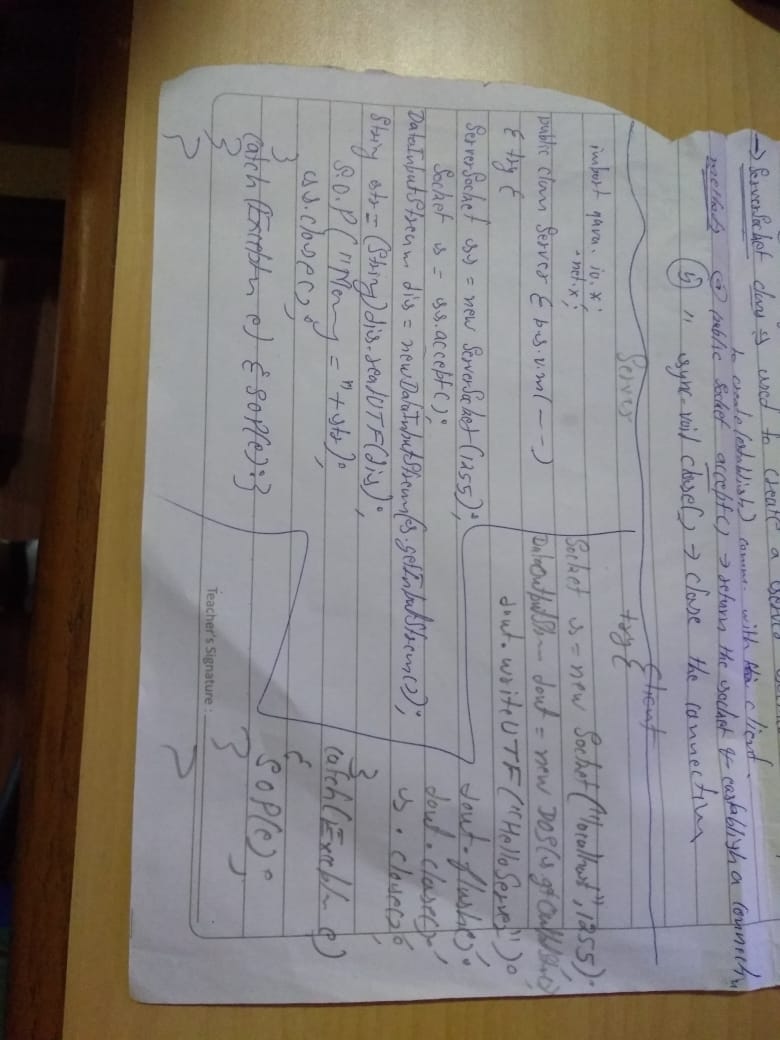 → ServerSocket class ⇒ used to create a server
to create (establish) comm. with the client.
methods ⓐ public Socket accept() → return the socket & establish a connectn
ⓑ " sync. void close() → close the connection
Server
import java.io.*;
.net.*;
public class Server { p.s.v.m( - - )
{ try {
ServerSocket ss = new ServerSocket(1255);
Socket s = ss.accept();
DataInputStream dis = new DataInputStream(s.getInputStream());
String str = (String)dis.readUTF(dis);
S.O.P("Meny = " + str);
ss.close();
}
catch(Exceptn e) { SOP(e); }
}
}
Client
try {
Socket s = new Socket("localhost", 1255);
DataOutputStrm dout = new DOS(s.getOutputStrm)
dout.writeUTF("Hello Server");
dout.flush();
dout.close();
s.close();
}
catch(Exceptn e)
{
SOP(e);
}
}
Teacher's Signature :